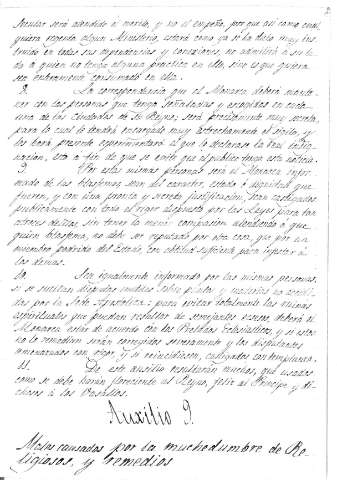 Secular será atendido á merito, y no al empeño, porque así como cual
quiera segundo algun Ministerio, estará como ya se ha dicho muy ins
truido en todas sus dependencias, y conexiones, no admitirá a su la
do á quien no tenga alguna practica en ella, sino es que quiera
ser enteramente consumado en ella.
8. La correspondencia que el Monarca deberá mante
ner con las personas que tenga señaladas y escogidas en cada
una de las Ciudades de su Reyno, será precisamente muy secreta,
para lo cual le tendrá encargado muy estrechamente el sigilo, y
les hará presente experimentará el que lo declarase la Real indig
nacion, esto a fin de que se evite que el publico tenga esta noticia.
9. Por estas mismas personas será el Monarca infor
mado de los blasfemos sean del caracter, estado ó dignidad que
fueren, y con una pronta y secreta justificacion, sean castigados
publicamente con todo el rigor dispuesto por las Leyes para tan
atroces delitos, sin tener la menor compasion atendiendo á que
quien blasfema, no debe ser reputado por otra cosa, que por un
miembro podrido del Estado, con actitud suficiente para infestar á
los demas.
10. Será igualmente informado por las mismas personas,
si se suscitan disputas inutiles sobre puntos y materias no recibi
das por la Sede Apostolica: para evitar totalmente las ruinas
espirituales que puedan resultar de semejantes excesos deberá el
Monarca estar de acuerdo con los Prelados Eclesiasticos, y si estos
no lo remedian serán corregidos seriamente y los disputantes
amenazados con rigor, y si reincidiesen, castigados con templanza.
11. De este auxilio resultarán muchos, que usados
como se debe harán floreciente al Reyno, feliz al Principe, y di
chosos á los Vasallos.
Auxilio 9.
Males causados por la muchedumbre de Re
ligiosos, y remedios